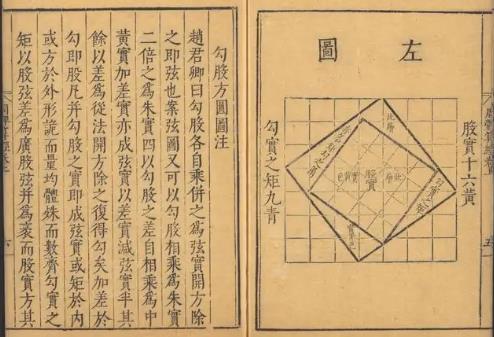 左圖
股實十六黃
股實
勾實之矩九青
勾股方圓圖注
趙君卿曰勾股各自乘併之爲弦實開方除
之即弦也案弦圖又可以勾股相乘爲朱實
二倍之爲朱實四以勾股之差自相乘爲中
黃實加差實亦成弦實以差實減弦實半其
餘以差爲從法開方除之復得勾矣加差於
勾即股凡并勾股之實即成弦實或矩於內
或方於外形詭而量均體殊而數齊勾實之
矩以股弦差爲廣股弦并爲袤而股實方其